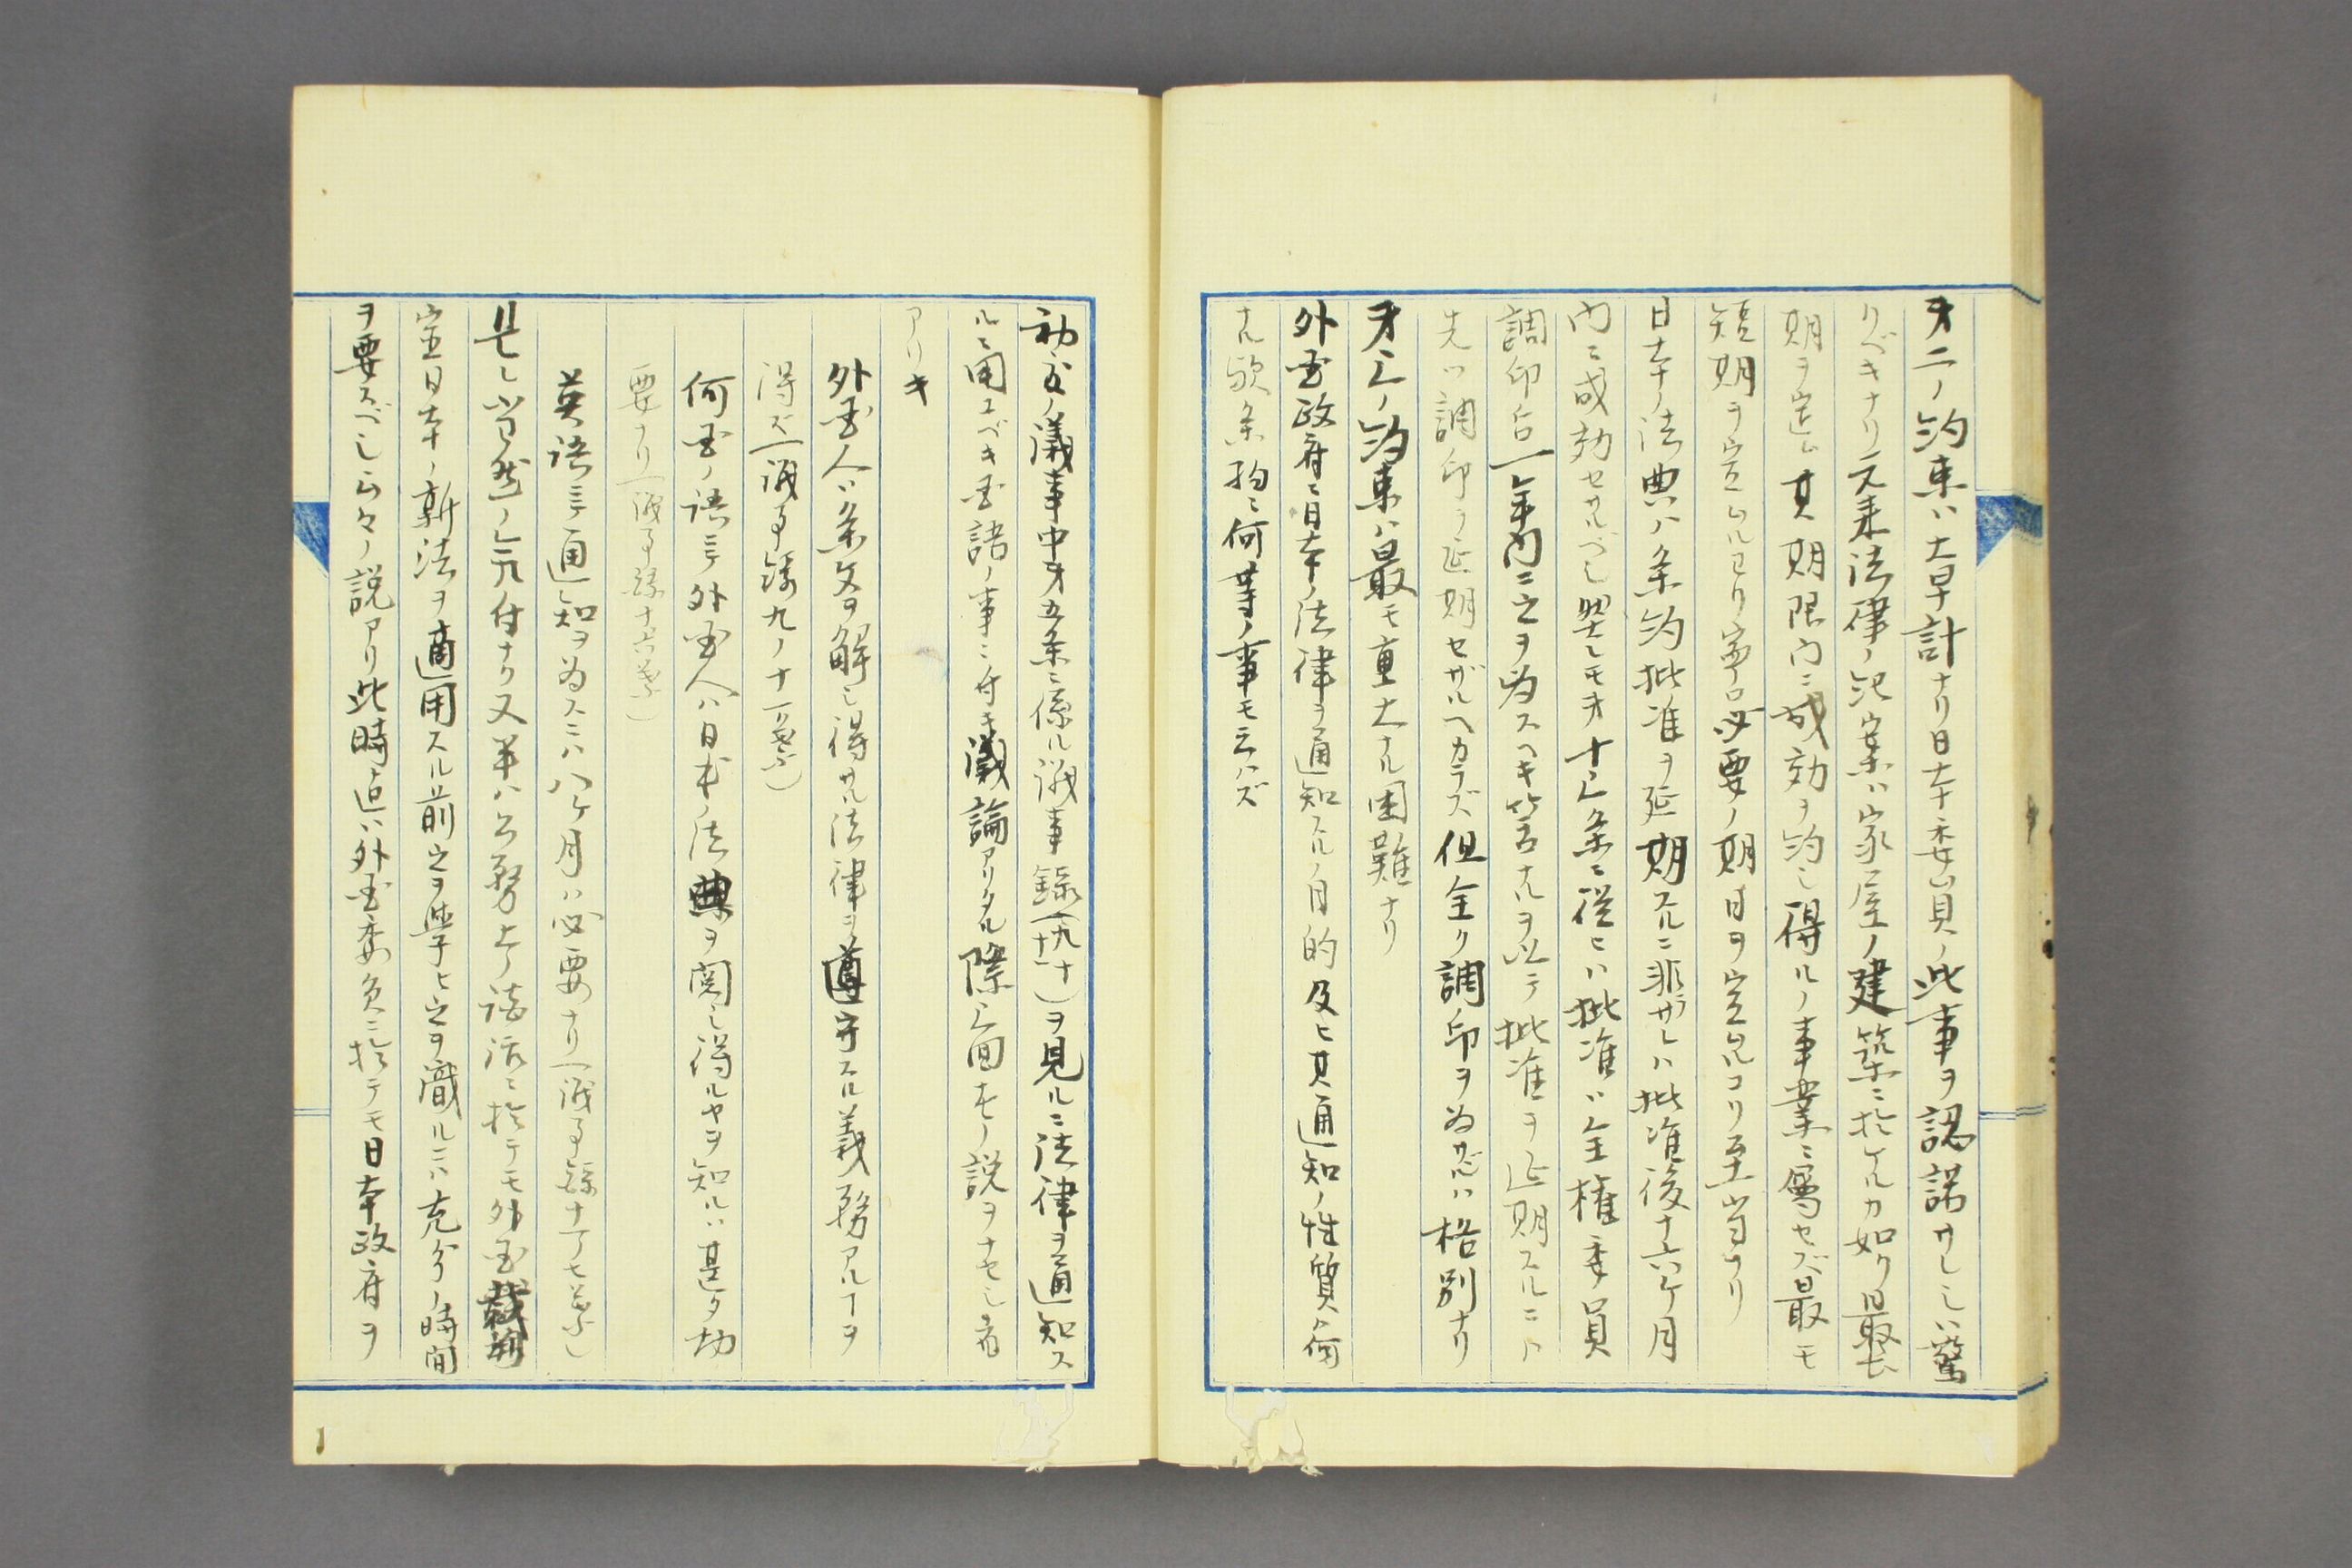 才二ノ約束ハ大早計ナリ日本委員ノ此事ヲ認諾サレシハ驚
クベキナリ元来法律ノ起案ハ家屋ノ建築ニ於ケルカ如ク最長
期ヲ定ム其期限内ニ成効ヲ約シ得ルノ事業ニ属セズ最モ
短期ヲ定ムルヨリ寧ロ必要ノ期日ヲ定ムルコソ至当ナリ
日本ノ法典ハ条約批准ヲ延期スルニ非ザレハ批准後十六ケ月
内ニ成効セサルベシ然レモ才十三条ニ従ヒハ批准ハ全権委員
調印后一年内ニ之ヲ為スヘキ筈ナルヲ以テ批准ヲ延期スルニハ
先ツ調印ヲ延期セザルヘカラズ但全ク調印ヲ為サザレハ格別ナリ
才三ノ約束ハ最モ重大ナル困難ナリ
外国政府ニ日本ノ法律ヲ通知スルノ目的及ヒ其通知ノ性質何
ナル歟条約ニ何等ノ事モ云ハズ
初度ノ議事中才五条ニ係ル議事録ヲ見ルニ法律ヲ通知ス
ルニ用ユベキ国語ノ事ニ付キ議論アリタル際三回左ノ説ヲナセシ者
アリキ
外国人ハ条文ヲ解シ得サル法律ヲ遵守スル義務アルコヲ
得ズ(議事録九ノ十一葉)
何国ノ語ニテ外国人ハ日本ノ法典ヲ閲シ得ルヤヲ知ルハ甚タ切
要ナリ(議事録十六葉)
英語ニテ通知ヲ為スニハ八ケ月ハ必要ナリ(議事録十丁七葉)
是レ当然ノ気付ナリ又単ハ公務上ノ談話ニ於テモ外国裁判
官日本ノ新法ヲ適用スル前之ヲ学ヒ之ヲ識ルニハ充分ノ時間
ヲ要スベシ云々ノ説アリ此時迄ハ外国委員ニ於テモ日本政府ヲ